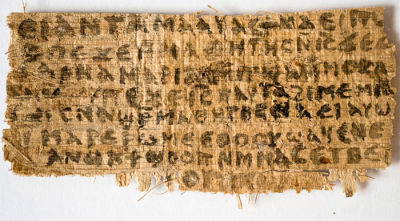 ⲉⲓ ⲁⲛ ⲧⲁⲙⲁⲁⲩ ⲁⲥϯⲛⲁⲉⲓ ⲡⲱ
ⲡⲉϫⲉ ⲙⲙⲁⲑⲏⲧⲏⲥ ⲛⲓⲥ ϫⲉ ⲥ
ⲁⲣⲛⲁ ⲙⲁⲣⲓⲁⲙ ⲙⲡϣⲁ ⲙⲙⲟⲥ ⲁ
ⲡⲉϫⲉ ⲓⲥ ⲛⲁⲩ ⲧⲁϩⲓⲙⲉ ⲙⲛ
ⲥⲛⲁϣⲣⲙⲁⲑⲏⲧⲏⲥ ⲛⲁⲉⲓ ⲁⲩⲱ
ⲙⲁⲣⲉⲣⲱⲙⲉ ⲉⲑⲟⲟⲩ ϣⲁϥⲉ ⲛⲉ
ⲁⲛⲟⲕ ϯϣⲟⲟⲡ ⲛⲙⲙⲁⲥ ⲉⲧⲃⲉ